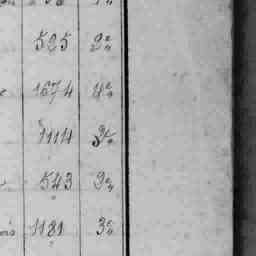 525 2e
1674 4e
1114 3e
543 3e
1181 3e